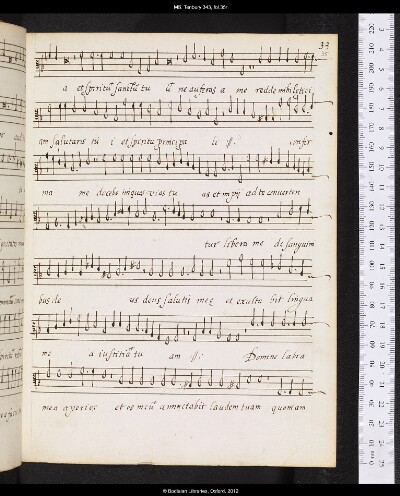 MS. Tenbury 343, fol.35r
33
35
a et spiritū sanctū tu ū ne auferas a me redde mihi letici
am salutaris tu i et spiritu principa li :||: confir
ma me docebo iniquos vias tu as et impij ad te converten
tur libera me de sanguini
bus de us deus salutis meę et exulta bit lingua
me a iustitiā tu am :||: Domine labia
mea aperies et os meū annuntiabit laudem tuam quoniam
© Bodleian Libraries, Oxford, 2012